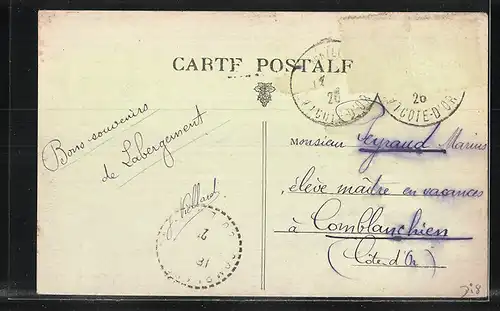 CARTE POSTALE
Bons souvenirs
de Labergement
26
CÔTE-D'OR
26
CÔTE-D'OR
Monsieur Peyraud Marius
élève maître en vacances
à Comblanchien
(Côte d'Or)